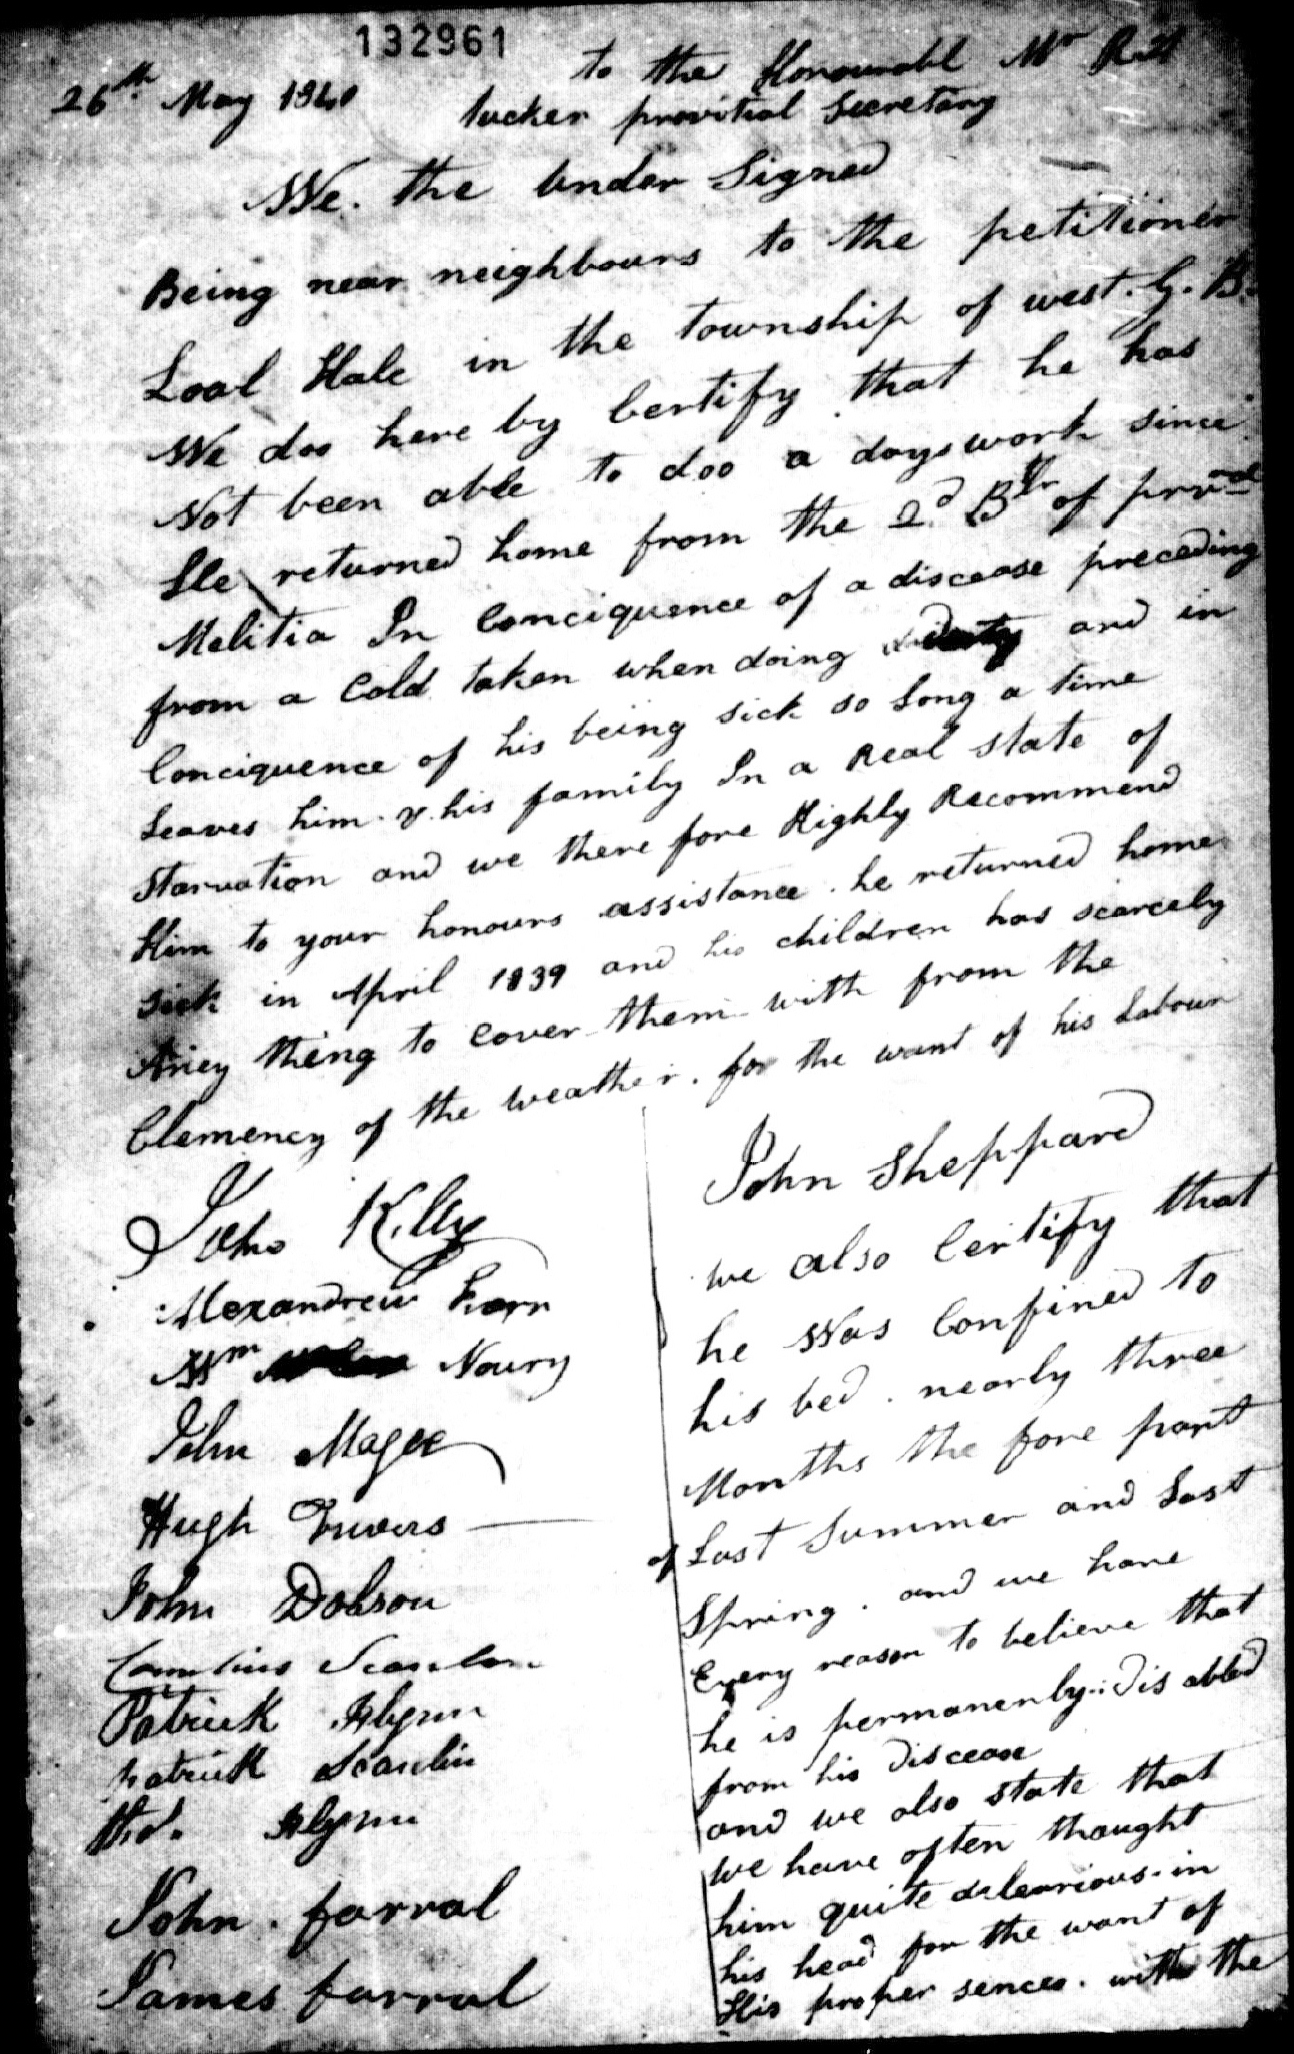 132961
26th May 1840
to the Honourabl Mr
tucker provitial Secretary
We. the Under Signed
Being near neighbours to the petitioner
Loal Hale in the township of west. G. B.
We doo here by Certify that he has
Not been able to doo a days work since
He returned home from the 2d Btr of prov
Melitia In Conciquence of a discease preceding
from a Cold taken when doing duty and in
Conciquence of his being sick so Long a time
Leaves him & his family In a Real state of
Starvation and we there fore Highly Recommend
Him to your honours assistance. he returned home
Sick in April 1839 and his children has scarcely
Aney thing to cover them with from the
Clemency of the weather. for the want of his Labour
John Kelly
Alexandrew
Wm Noury
John Magee
Hugh
John Dobson
Cornelius Scanlon
Patrick Flynn
patrick Scanlin
Flynn
John. farral
James farral
John Sheppard
we also Certify that
he Was Confined to
his bed. nearly three
Months the fore part
of Last Summer and Last
Spring. and we have
Every reason to believe that
he is permanenly. Dis abled
from his Discease
and we also state that
we have often thought
him quite delearious. in
his head for the want of
His proper sences. with the